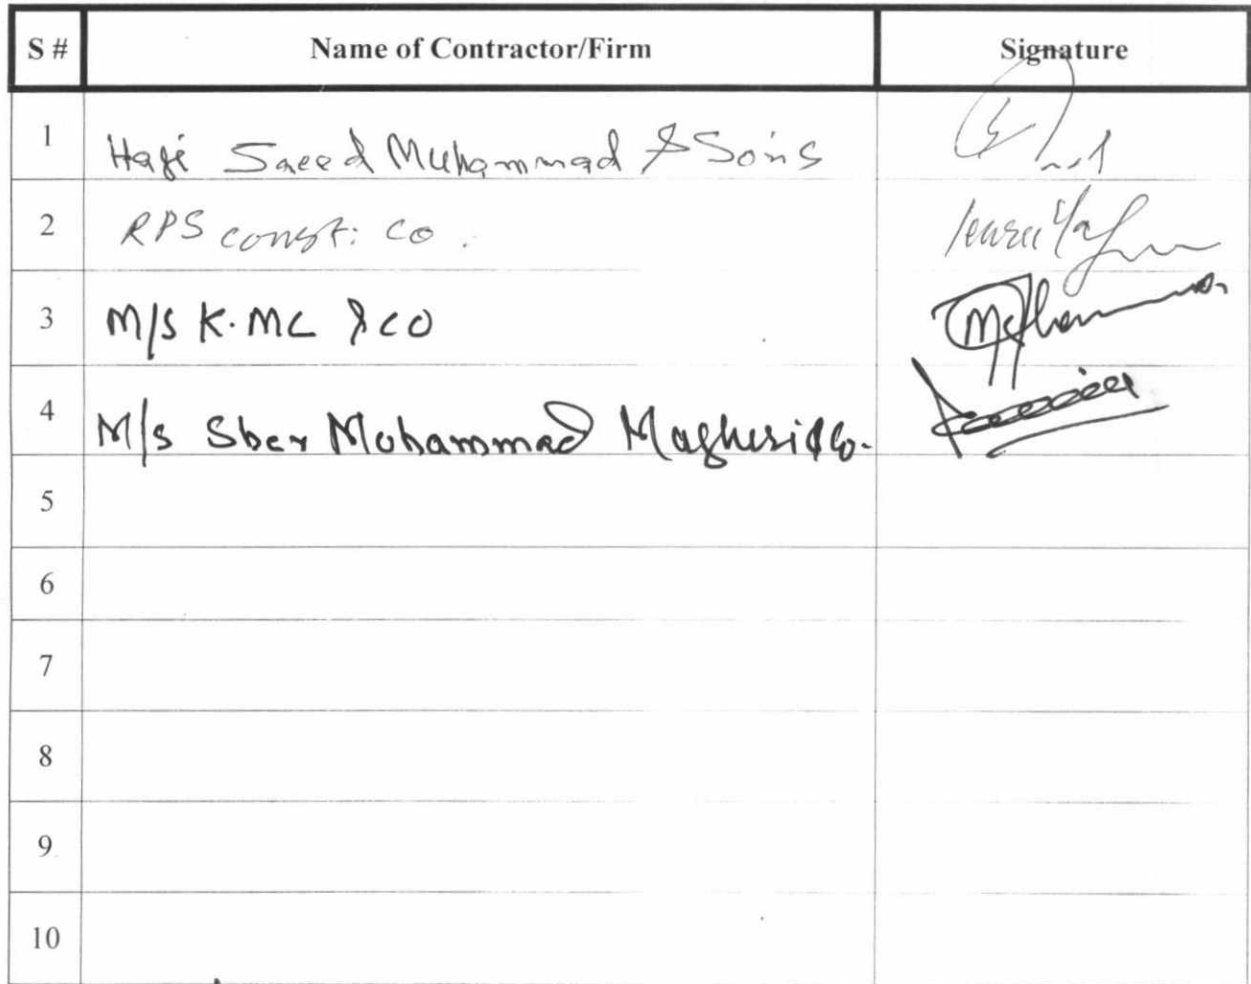 S # Name of Contractor/Firm Signature
1 Haji Saeed Muhammad & Sons
2 RPS const: co.
3 M/S K.MC & CO
4 M/s Sher Mohammad Mugheri & Co.
5
6
7
8
9
10